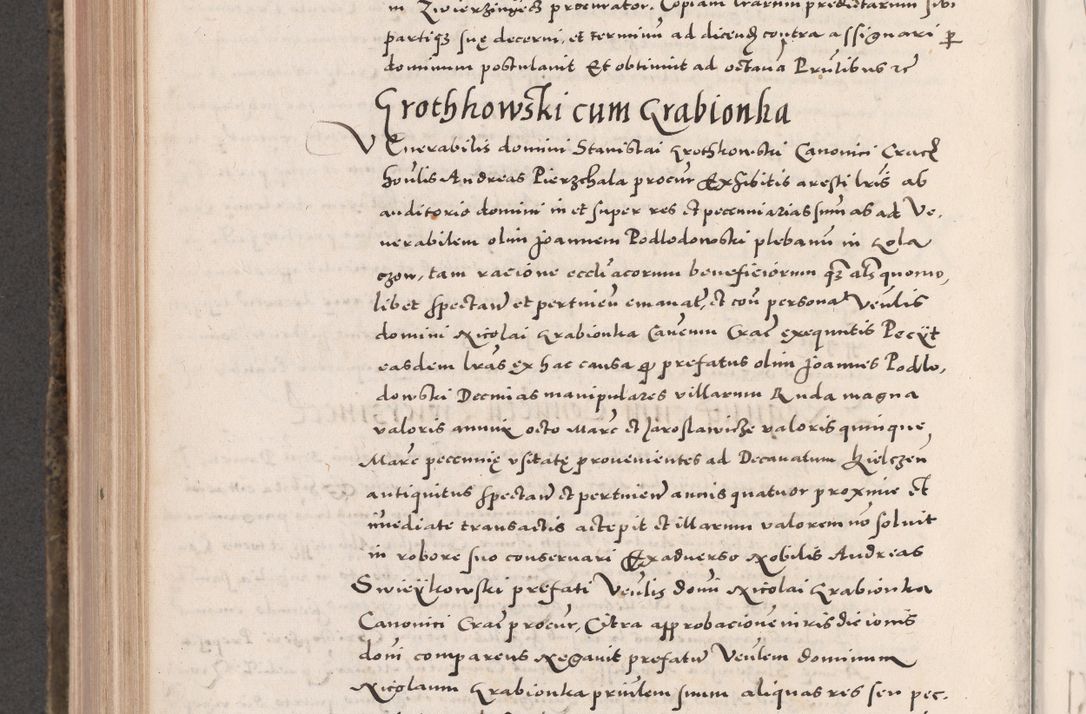 in Zwierzinyecz procurator. Copiam lrarum predictarum sibi
partiqз suę decerni, et terminũ ad dicendũ contra assignari per
dominum postulavit Et obtinuit ad octava Prulibus etc
Grothkowski cum Grabionka
Venerabilis domini Stanislai Grothkowski Canonici Cracoũ
Andreas Pierzchala procur Exhibitis aresti lris ab
auditorio domini in et super res et pecuniarias sum̃as ad Ve-
nerabilem olim Joannem Podlodowski plebanũ in Gola
czow, tam racione eccli͂acorum beneficiorum qз als quomo,
libet spectañ et pertineñ emanat̃, et coñ personã Veñlis
domini Nicolai Grabionka Canoni Crac̃ exequutis Pecÿt
easdem lras ex hac causa quod prefatus olim Joannes Podlo,
dowski Decimas manipulares villarum Ruda magna
valoris annui octo Marc̃ et Jaroslawicze valoris quinque
Marc̃ pecunię usitatę provenientes ad Decanatum Kielczeñ
antiquitus spectañ et pertineñ annis quatuor proxime et
imediate transactis accepit et illarum valorem nõ solvit
in robore suo conservari Exadverso Nobilis Andreas
Swieÿkowski prefati Veñlis domĩ Nicolai Grabionka
Canonici Crac̃ procur, Citra approbacionem iurisdicionis
domĩ comparens Negavit prefatũ Veñlem dominum
Nicolaum Grabionka priñlem suum aliquas res seu pec-